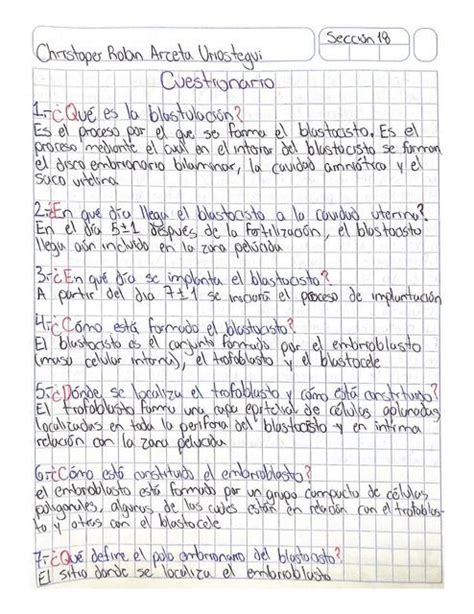 Sección 18
Christoper Robin Arceta Uriostegui
Cuestionario
1.-¿Qué es la blastulación?
Es el proceso por el que se forma el blastocisto. Es el
proceso mediante el cual en el interior del blastocisto se forman
el disco embrionario bilaminar, la cavidad amniótica y el
saco vitelino.
2.-¿En qué día llega el blastocisto a la cavidad uterina?
En el día 5±1 después de la fertilización, el blastocisto
llega aún incluido en la zona pelúcida
3.-¿En qué día se implanta el blastocisto?
A partir del día 7±1 se iniciará el proceso de implantación
4.-¿Cómo está formado el blastocisto?
El blastocisto es el conjunto formado por el embrioblasto
(masa celular interna), el trofoblasto y el blastocele
5.-¿Dónde se localiza el trofoblasto y cómo está constituido?
El trofoblasto forma una capa epitelial de células aplanadas
localizadas en toda la periferia del blastocisto y en íntima
relación con la zona pelúcida
6.-¿Cómo está constituido el embrioblasto?
el embrioblasto está formado por un grupo compacto de células
poligonales, algunas de las cuales están en relación con el trofoblas-
to y otras con el blastocele
7.-¿Qué define el polo embrionario del blastocisto?
El sitio donde se localiza el embrioblasto